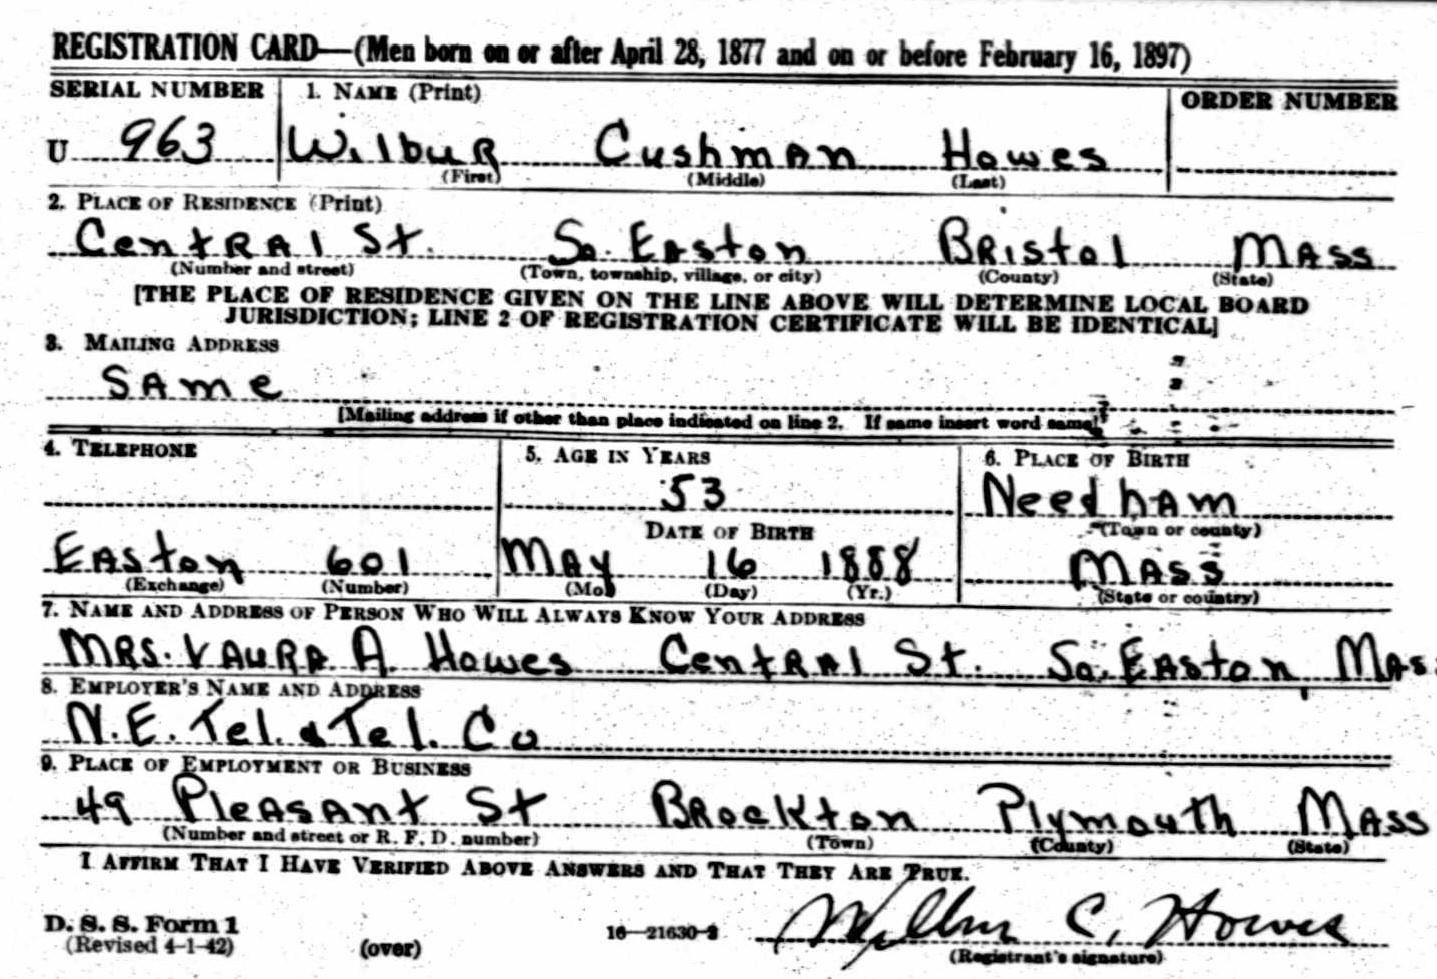 REGISTRATION CARD—(Men born on or after April 28, 1877 and on or before February 16, 1897)
SERIAL NUMBER 1. NAME (Print) ORDER NUMBER
U 963 Wilbur Cushman Howes
(First) (Middle) (Last)
2. PLACE OF RESIDENCE (Print)
Central St. So. Easton Bristol Mass
(Number and street) (Town, township, village, or city) (County) (State)
[THE PLACE OF RESIDENCE GIVEN ON THE LINE ABOVE WILL DETERMINE LOCAL BOARD
JURISDICTION; LINE 2 OF REGISTRATION CERTIFICATE WILL BE IDENTICAL]
3. MAILING ADDRESS
Same
[Mailing address if other than place indicated on line 2. If same insert word same]
4. TELEPHONE 5. AGE IN YEARS 6. PLACE OF BIRTH
53 Needham
DATE OF BIRTH (Town or county)
Easton 601 May 16 1888 Mass
(Exchange) (Number) (Mo.) (Day) (Yr.) (State or country)
7. NAME AND ADDRESS OF PERSON WHO WILL ALWAYS KNOW YOUR ADDRESS
Mrs. Laura A. Howes Central St. So. Easton, Mass
8. EMPLOYER'S NAME AND ADDRESS
N.E. Tel. & Tel. Co
9. PLACE OF EMPLOYMENT OR BUSINESS
49 Pleasant St Brockton Plymouth Mass
(Number and street or R. F. D. number) (Town) (County) (State)
I AFFIRM THAT I HAVE VERIFIED ABOVE ANSWERS AND THAT THEY ARE TRUE.
D. S. S. Form 1 Wilbur C. Howes
(Revised 4-1-42) (over) 16—21630-2 (Registrant's signature)